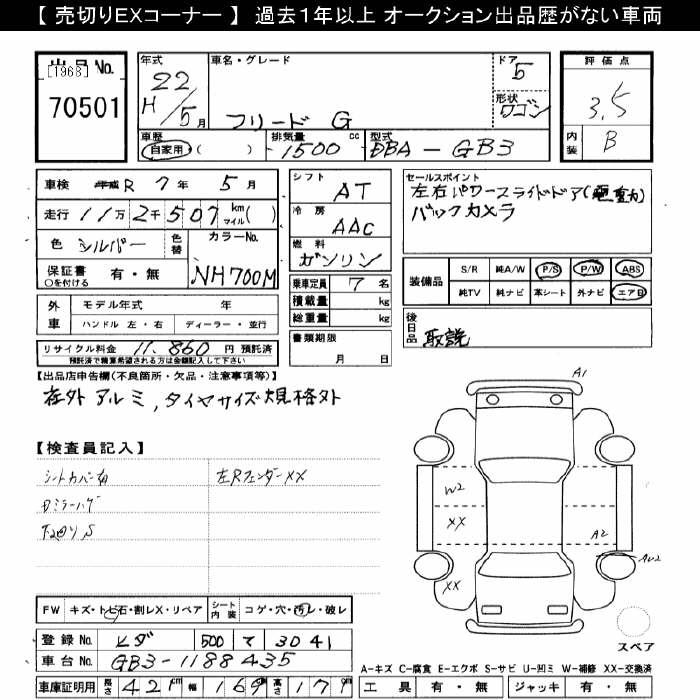 【 売切りEXコーナー 】 過去１年以上 オークション出品歴がない車両
出品 No.
[1968]
70501
年式
22
H／5月
車名・グレード
フリード G
ドア
5
形状
ワゴン
評価点
3.5
内装
B
車歴
自家用・( )
排気量
1500 cc
型式
DBA - GB3
車検 平成 R 7 年 5 月
走行 11万 2千 507 km マイル ( )
色 シルバー 色替
カラーNo.
NH700M
保証書 有・無
○を付ける
シフト
AT
冷房
AAC
燃料
ガソリン
乗車定員 7 名
積載量 kg
総重量 kg
書類期限
月 日
セールスポイント
左右パワースライドドア(電動)
バックカメラ
装備品
S/R 純A/W P/S P/W ABS
純TV 純ナビ 革シート 外ナビ エアB
後日品
取説
外車
モデル年式 年
ハンドル 左・右 ディーラー・並行
リサイクル料金 11,860 円 預託済
預託済で精算希望される方は金額記入して下さい
【出品店申告欄(不良箇所・欠品・注意事項等)】
社外アルミ,タイヤサイズ規格外
【検査員記入】
シートカバー有
左Rフェンダー XX
ミラーハゲ
下廻りS
A1
W2
XX
XX
A2
AU2
スペア
FW キズ・トビ石・割レX・リペア
シート内装 コゲ・穴・汚レ・破レ
登録 No. ヒダ 500 て 3041
車台 No. GB3-1188435
車庫証明用 長さ 421 cm 幅 169 cm 高さ 171 cm
A-キズ C-腐食 E-エクボ S-サビ U-凹ミ W-補修 XX-交換済
工具 有・無 ジャッキ 有・無